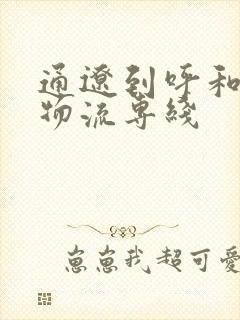 通辽到呼和
物流专线
崽崽我超可爱